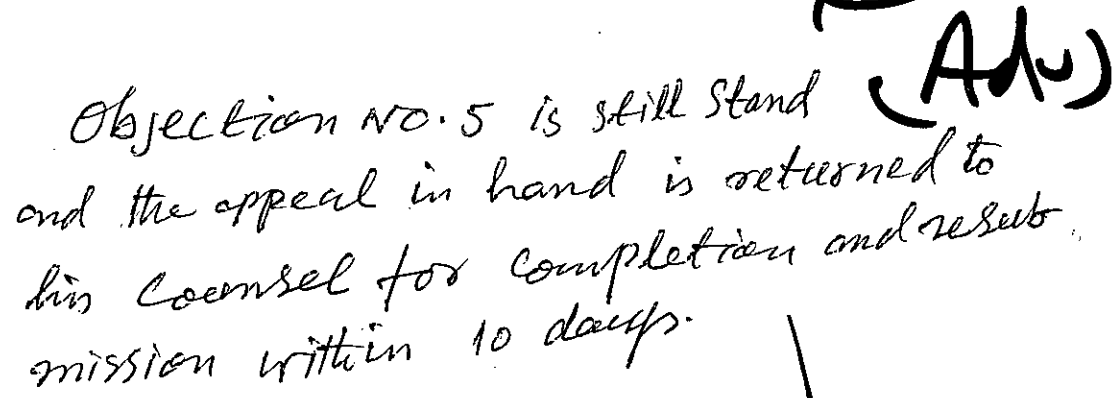 (Adv)
Objection No. 5 is still Stand
and the appeal in hand is returned to
his Counsel for Completion and resub
mission within 10 days.